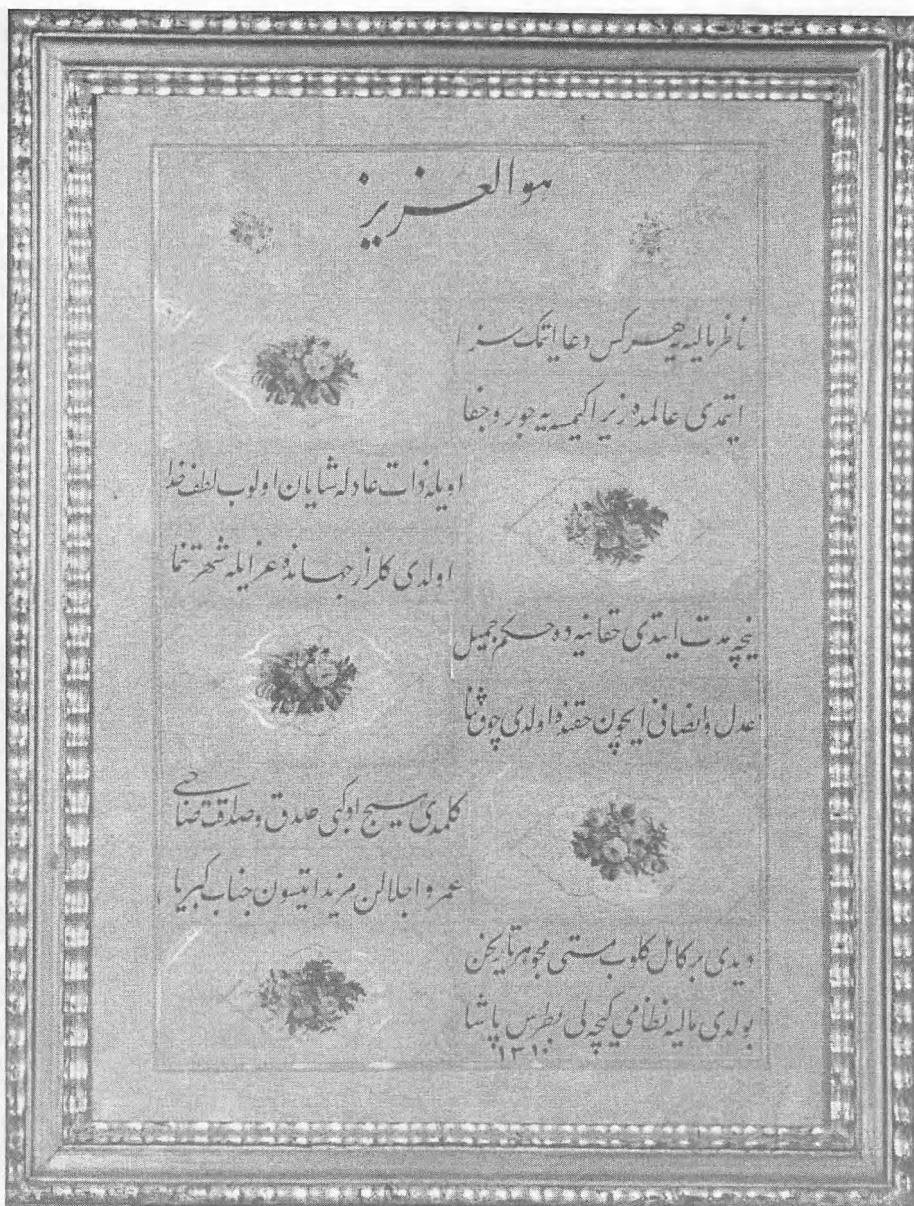 هو العزيز
ناظر ماليه يه هركس دعا ايتمك سزا
ايتمدى عالمده زيرا كيمسه يه جور و جفا
اويله ذات عادله شايان اولوب لطف خدا
اولدى كلزار جهانده عز ايله شهرتنما
نيچه مدت ايتدى حقانيه ده حكم جميل
عدل و انصافى ايچون حقنده اولدى چوق ثنا
كلمدى هيچ اوكبى صدق و صداقت صاحبى
عمر و اجلالن مزيد ايتسون جناب كبريا
ديدى بر كامل كلوب مستى مجوهر تاريخن
بولدى ماليه نظامى كيچه لى بطرس پاشا
١٣١٠